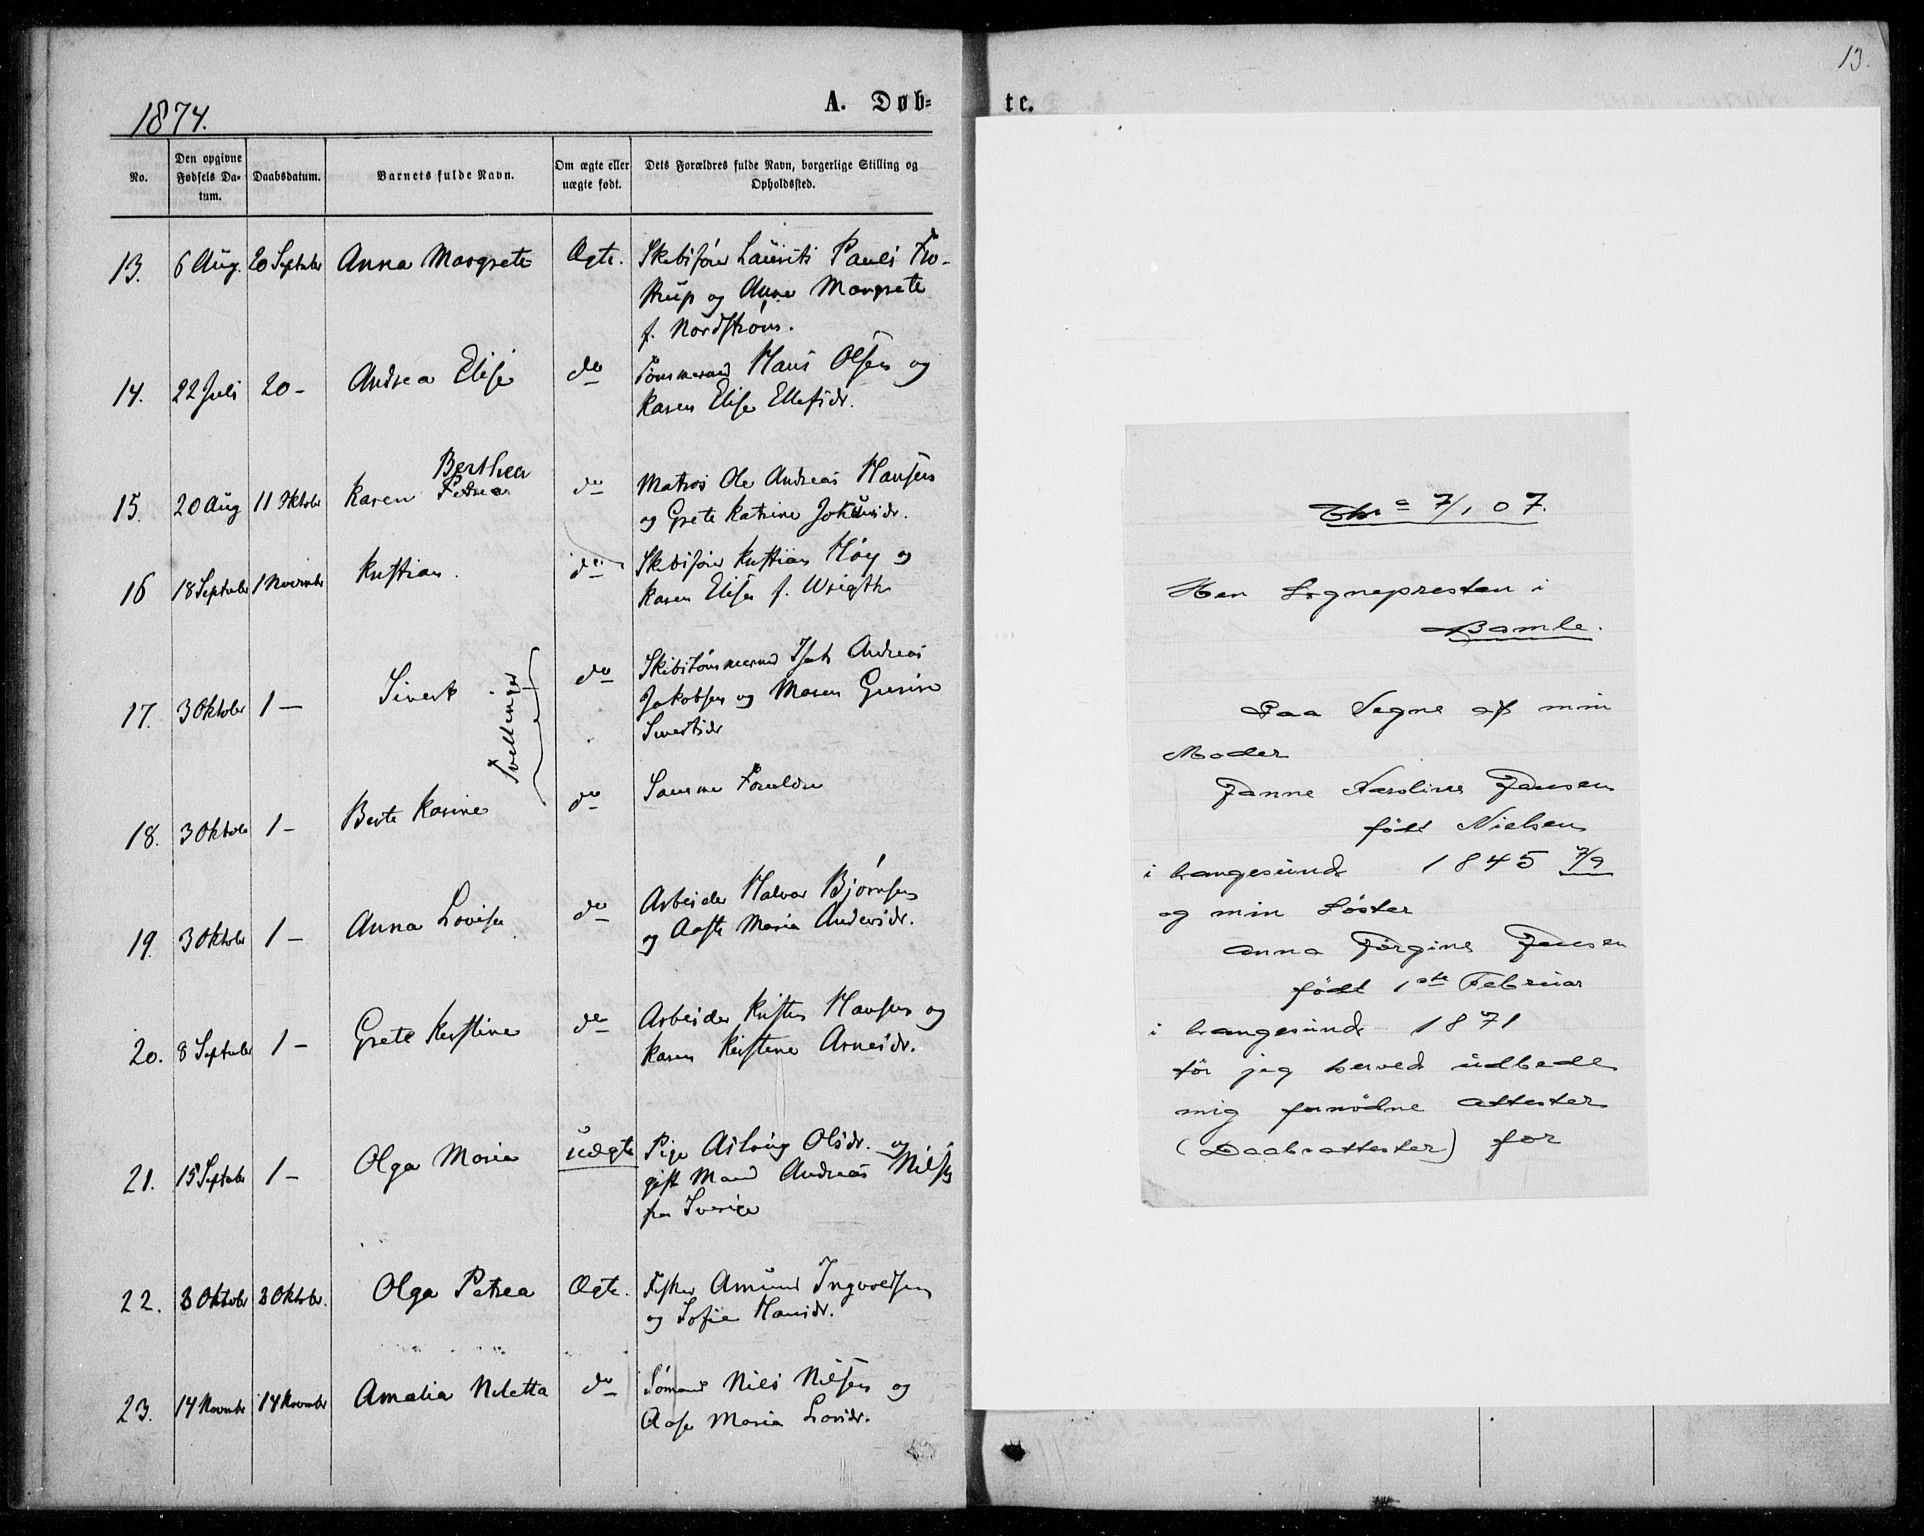 1874.
A. Døb=
te.
13.
No.
Den opgivne Fødsels Da=tum.
Daabsdatum.
Barnets fulde Navn.
Om ægte eller uægte født.
Dets Forældres fulde Navn, borgerlige Stilling og Opholdssted.
13. 6 Aug. 20 Septuber Anna Margrete Ægte. Skibsfører Laurits Pauls Fro-
strup og Anne Margrete
f. Nordstrøm.
14. 22 Juli 20 - Andrea Elise do Tømmermd Hans Olsen og
Karen Elise Ellefsdr.
Berthea
15. 20 Aug 11 Oktober Karen Petrea do Matros Ole Andreas Hansen
og Grete Katrine Johnsdr.
16 18 Septuber 1 November Kristian. do Skibsfører Kristian Høy og
Karen Elise f. Wrigth
17. 3 Oktober 1 - Sivert do Skibstømmermd Isak Andreas
Jakobsen og Maren Gurine
Sivertsdr
Tvillinger
18. 3 Oktober 1 - Berte Karine do Samme Forældre
19. 3 Oktober 1 - Anna Lovise do Arbeider Halvor Bjørnsen
og Aaste Maria Andersdr.
20. 8 Septuber 1 - Grete Kirstine do Arbeider Kristen Hansen og
Karen Kirstine Arnesdr.
21. 15 Septuber 1 - Olga Maria uægte Pige Aslaug Olsdr. og
gift Mand Andreas Nilsen
fra Sverige
22. 3 Oktober 3 Oktober. Olga Petrea Ægte. Fisker Amund Ingvoldsen
og Sofie Hansdr.
23. 14 November 14 November Amalia Niletta do Sømand Nils Nilsen og
Aase Maria Larsdr.
Chra 7/1 07.
Herr Sognepresten i
Bamle.
Paa Vegne af min
Moder
Janne Karoline Jensen
født Nielsen
i Langesund 1845 7/9
og min Søster
Anna Jørgine Jensen
født 1ste Februar
i Langesund 1871
tør jeg herved udbede
mig fornødne Attester
(Daabsattester) for